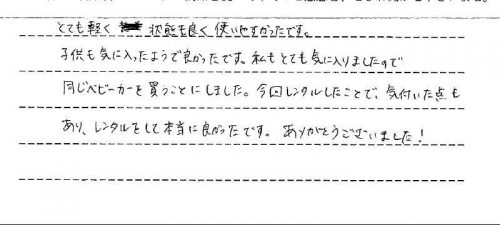 とても軽く 状態も良く使いやすかったです。
子供も気に入ったようで良かったです。私もとても気に入りましたので
同じベビーカーを買うことにしました。今回レンタルしたことで、気付いた点も
あり、レンタルをして本当に良かったです。ありがとうございました！